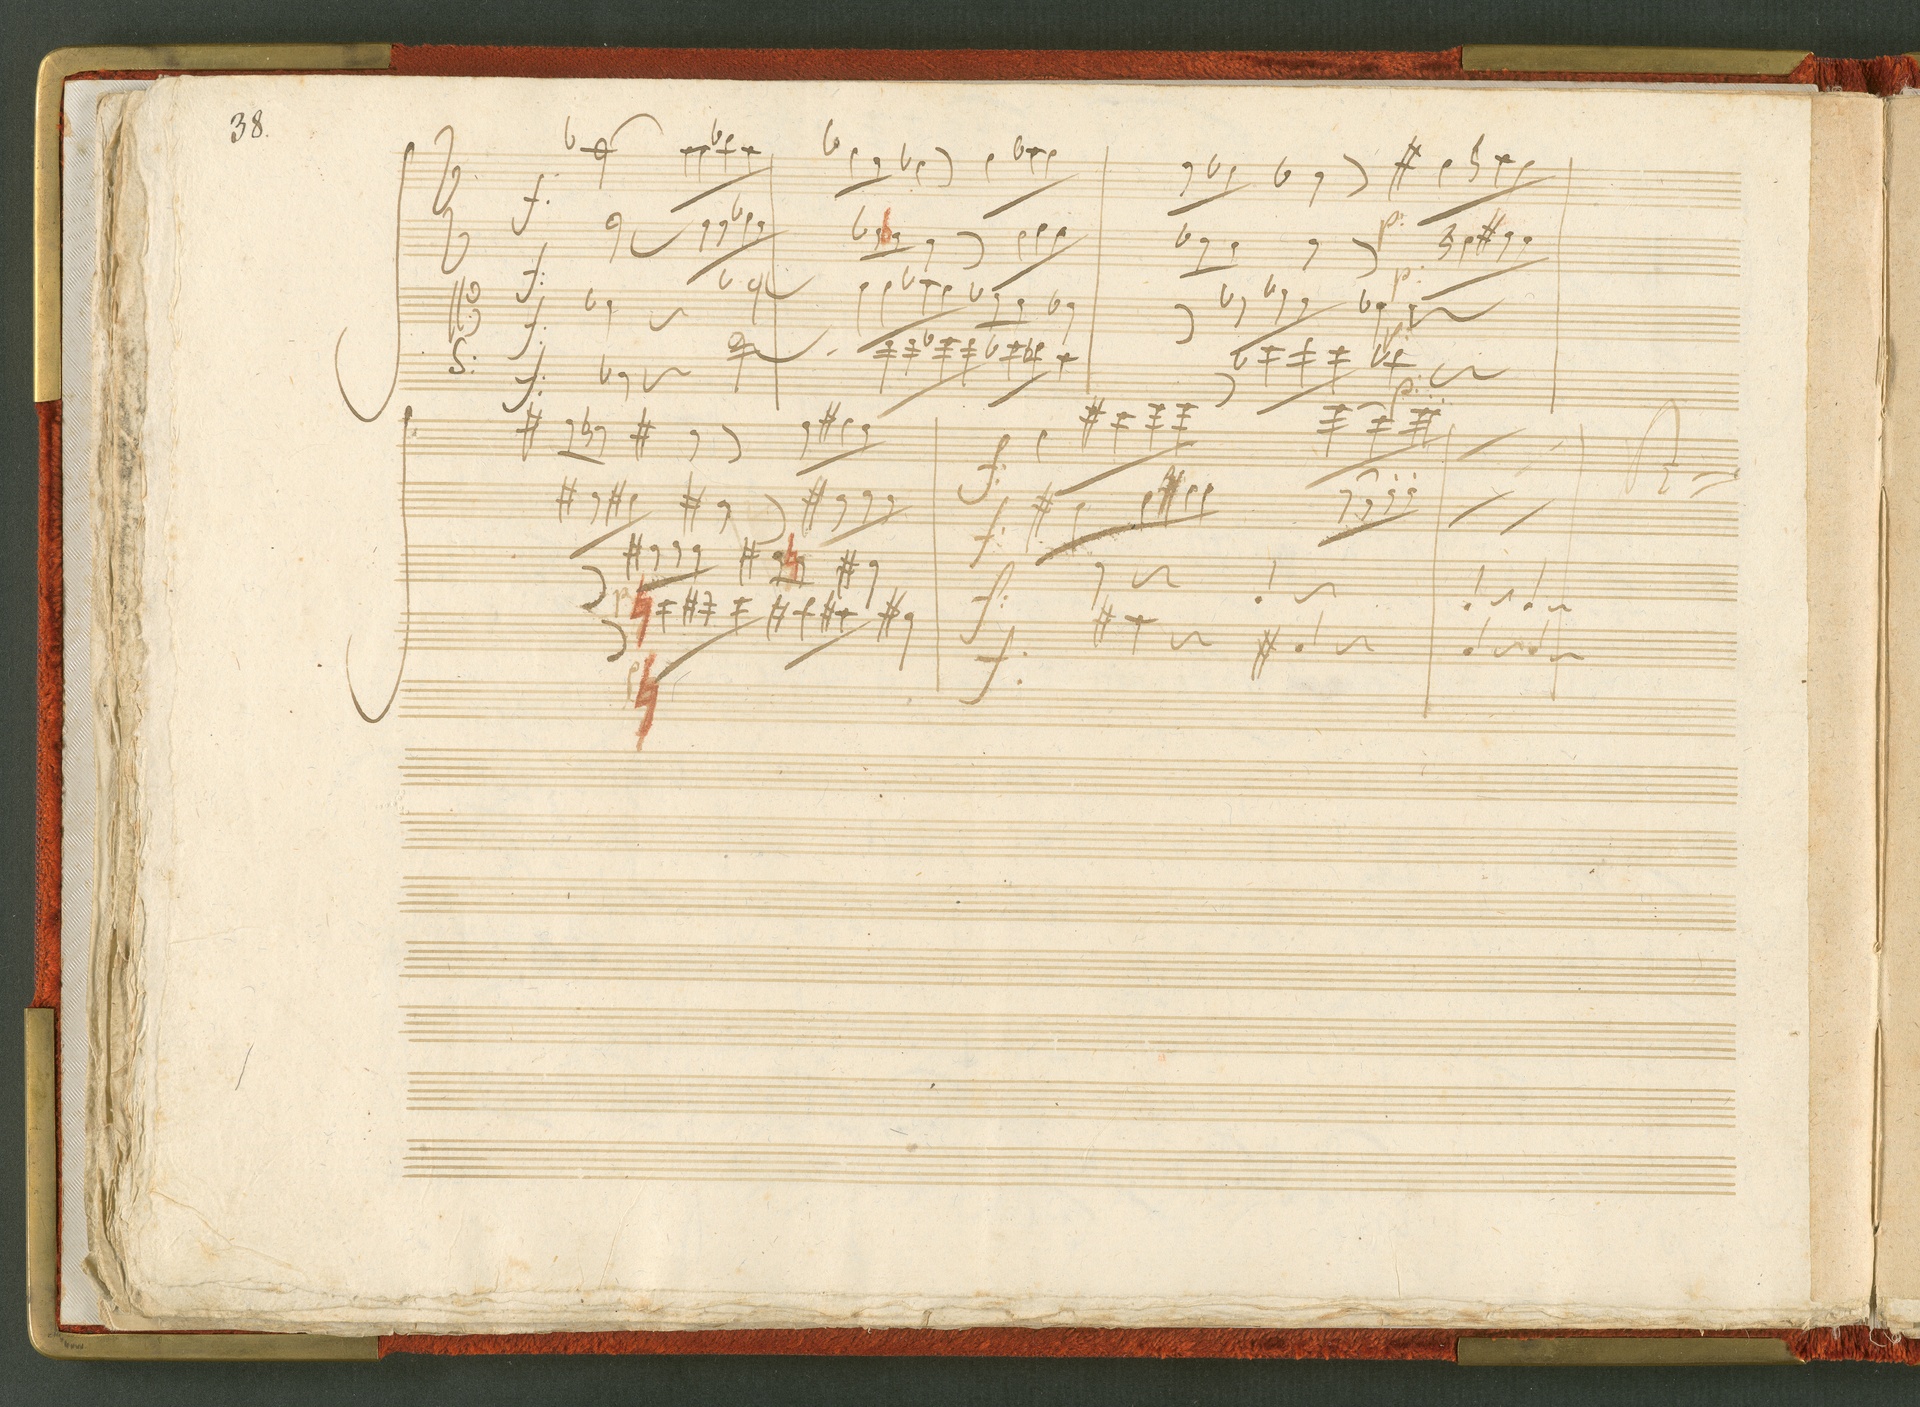 38.
f:
f:
f:
f:
p:
p:
p:
p:
f:
f:
f:
f:
p
p